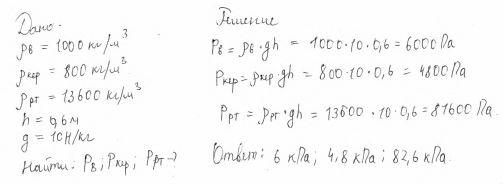 Дано:
ρв = 1000 кг/м³
ρкер = 800 кг/м³
ρрт = 13600 кг/м³
h = 0,6 м
g = 10 Н/кг
Найти: Pв; Pкер; Pрт - ?
Решение
Pв = ρв · gh = 1000 · 10 · 0,6 = 6000 Па
Pкер = ρкер · gh = 800 · 10 · 0,6 = 4800 Па
Pрт = ρрт · gh = 13600 · 10 · 0,6 = 81600 Па.
Ответ: 6 кПа; 4,8 кПа; 82,6 кПа.